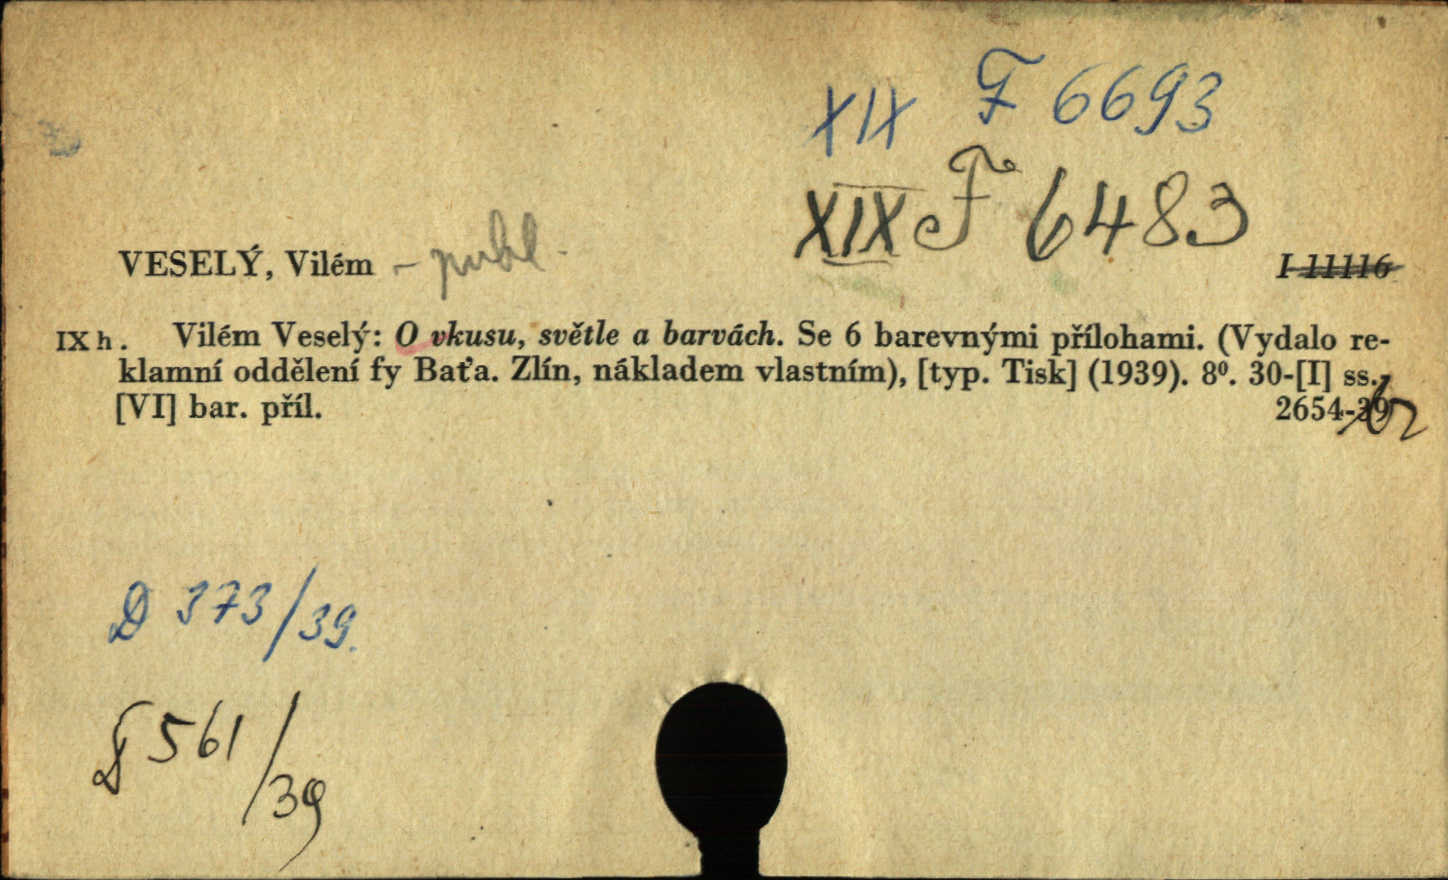 XIX F 6693
XIX F 6483
VESELÝ, Vilém – publ. I 11116
IX h. Vilém Veselý: O vkusu, světle a barvách. Se 6 barevnými přílohami. (Vydalo re-
klamní oddělení fy Baťa. Zlín, nákladem vlastním), [typ. Tisk] (1939). 8⁰. 30-[I] ss.,
[VI] bar. příl. 2654-39
D 373/39.
D 561/39